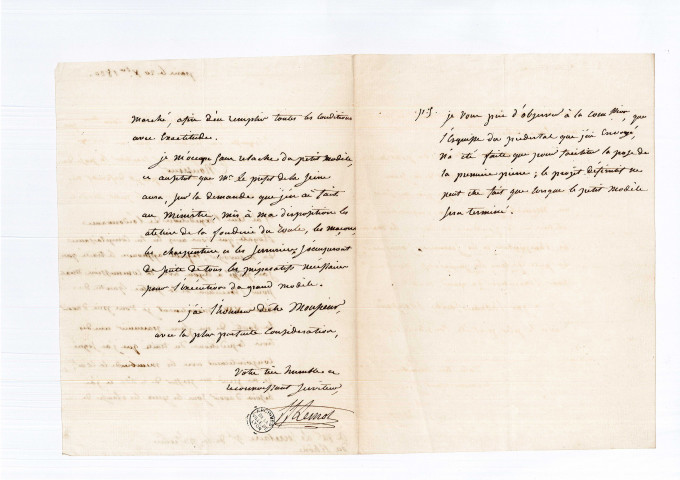 marché, afin d'en remplir toutes les conditions
avec exactitude.
je m'occupe sans relache du petit modele
et aussitot que Mr. le prefet de la Seine
aura, sur la demande que j'en ai fait
au Ministre, mis à ma disposition les
atelier de la fonderie du Roule, les macons
les charpentiers, et les serruriers s'occuperont
de suite de tous les preparatifs nécéssaire
pour l'éxécution du grand modele.
j'ai l'honneur d'etre Monsieur,
avec la plus parfaite consideration,
Votre tres humble et
reconnoissant serviteur,
Lemot
p.S. je vous prie d'observer à la comission, que
l'esquisse du piedestal que j'ai envoyé,
n'a été faite que pour faciliter la pose de
la premiere pierre; le projet définitif ne
peut etre fait que lorsque le petit modele
sera terminé.